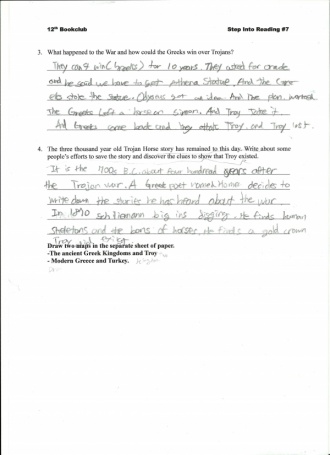 12th Bookclub Step Into Reading #7
3. What happened to the War and how could the Greeks win over Trojans?
They can't win (Greeks) for 10 years. They asked for oracle
and he said we have to get Athena Statue. And The
stole the Statue. got an idea. And the plan
The Greeks left a And Troy Take it.
And Greeks came back and they attack Troy and Troy lost.
4. The three thousand year old Trojan Horse story has remained to this day. Write about some
people's efforts to save the story and discover the clues to show that Troy existed.
It is the 700s B.C. about four hundread years after
the Trojan war. A Greek poet Home decides to
Write down the stories he has heard about the war
In 1870 Schliemann digging. He finds human
Skeletons and the bons of horses. He finds a gold crown
Troy did exist.
Draw two maps in the separate sheet of paper.
-The ancient Greek Kingdoms and Troy
- Modern Greece and Turkey.